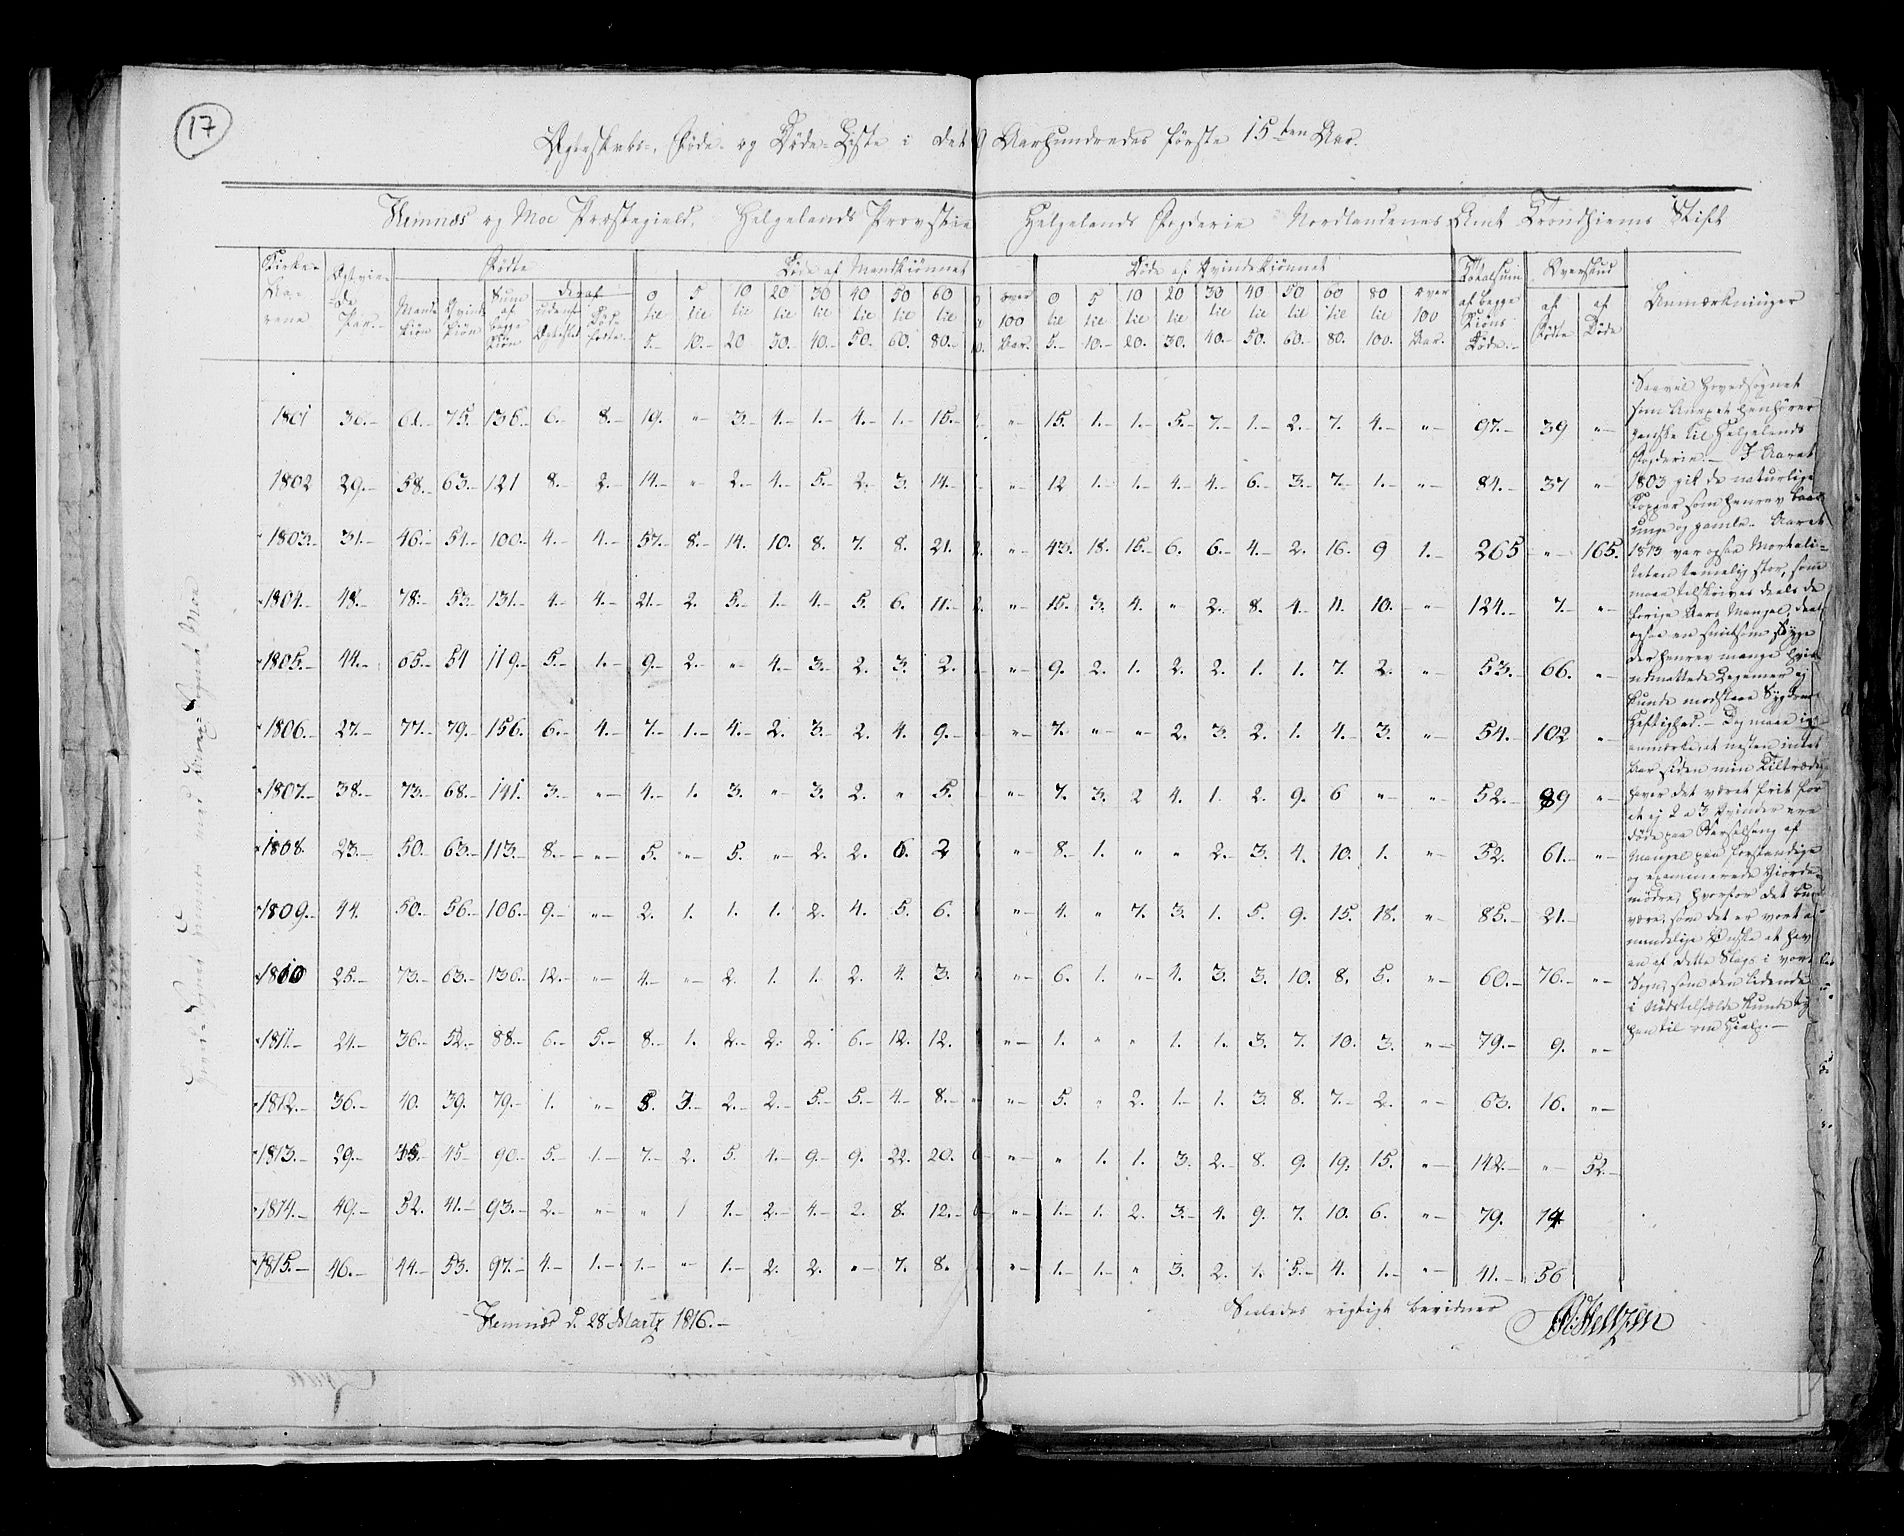 17
Ægteskabs-, Føde- og Døde-Liste i det 19 Aarhundredes første 15ten Aar.
Hemnæs og Moe Præstegield, Helgelands Provstie Helgelands Fogderie Nordlandenes Amt Trondhiems Stift
Kirke-Aarene Ægtviede Par. Fødte Døde af Mandkiønnet Døde af Qvindekiønnet Totalsum af begge Kiøns Døde Overskud Anmærkninger
Mandkiøn Qvindekiøn Sum af begge Kiøn deraf udenf Ægteskab Dødfødte 0 til 5 5 til 10 10 til 20 20 til 30 30 til 40 40 til 50 50 til 60 60 til 80 over 100 Aar. 0 til 5 5 til 10 10 til 20 20 til 30 30 til 40 40 til 50 50 til 60 60 til 80 80 til 100 over 100 Aar. af Fødte af Døde
1801 36.- 61.- 75. 136.- 6.- 8.- 19. " 3. 4.- 1.- 4.- 1. 15. " 15. 1. 1. 5. 7. 1. 2. 7. 4. " 97.- 39 "
1802 29.- 58.- 63.- 121 8.- 2.- 14.- " 2.- 4.- 5. 2. 3. 14.- " 12 1. 1. 4. 4. 6. 3. 7. 1. " 84. 37 "
1803. 31.- 46.- 54.- 100.- 4.- 4.- 57. 8. 14. 10. 8. 7. 8. 21. 2. " 43. 18. 15. 6. 6. 4. 2. 16. 9 1. 265 " 165.
1804. 48.- 78. 53. 131.- 4.- 4.- 21. 2. 5. 1. 4. 5. 6. 11. 2. " 15. 3. 4. " 2. 8. 4. 11. 10. " 124. 7. "
1805. 44.- 65.- 54 119.- 5.- 1.- 9. 2. " 4. 3. 2. 3. 2. " 9. 2. 1. 2. 2. 1. 1. 7. 2. " 53. 66. "
1806. 27.- 77. 79. 156. 6. 4. 7. 1. 4. 2. 3. 2. 4. 9. " 7. " " 2. 3. 2. 1. 4. 3. " 54. 102 "
1807. 38.- 73. 68. 141. 3. " 4. 1. 3. " 3. 2. " 5. " 7. 3. 2 4. 1. 2. 9. 6 " " 52. 89 "
1808. 23. 50. 63. 113. 8. " 5. " 5. " 2. 2. 6. 2 " 8. 1. " " 2. 3. 4. 10. 1. " 52. 61. "
1809. 44. 50. 56. 106. 9. " 2. 1. 1. 1. 2. 4. 5. 6. " 4. " 7. 3. 1. 5. 9. 15. 18. " 85. 21.
1810 25. 73. 63. 136. 12. " 4. " 2. 1. 1. 2. 4. 3. " 6. 1. " 4. 3. 3. 10. 8. 5. " 60. 76. "
1811. 24. 36. 52. 88. 6. 5. 8. 1. 2. 2. 2. 6. 12. 12. " 1. " " 1. 1. 3. 7. 10. 3. " 79. 9. "
1812. 36. 40. 39. 79. 1. " 5. 3. 2. 2. 5. 5. 4. 8. " 5. " 2. 1. 1. 3. 8. 7. 2. " 63. 16. "
1813. 29. 45. 45 90. 5. 1. 7. 2. 5. 4. 9. 9. 22. 20. " " 1. 1. 3. 2. 8. 9. 19. 15. " 142. " 52.
1814. 49. 52. 41. 93. 2. " " 1 1. 2. 4. 2. 8. 12. " 1. 1. 2. 3. 4. 9. 7. 10. 6. " 79. 14
1815. 46. 44. 53. 97. 4. 1. 1. " 1. 2. 2. " 7. 8. " 1. 1. " 3. 2. 1. 5. 4. 1. " 41. 56
Saavel Hovedsognet
som Anexet henhører
ganske til Helgelands
Fogderie.- I Aaret
1803 gik de naturlige
Kopper som henrev baade
unge og gamle. Aaret
1813 var ogsaa Mortali-
teten temmelig stor, som
maae tilskrives deels de
forige Aars Mangel, deels
ogsaa en smitsom Syge
der henrev mange hvis
udmattede Legemer ej
kunde modstaae Sygdommens
Heftighed.- Og maae jeg
anmærke, at nesten intet
Aar siden min Tiltrædelse
haver det været frit for
at ej 2 a 3 Qvinder ere
døde paa Barselseng af
Mangel paa forstandige
og examinerede Jorde-
mødre, hvorfor det bur
være, som det er vort a
mindelige Ønske at hav
en af dette Slags i vort
Sogn, som den lidende
i Nødstilfælde kunde ty
hen til om Hielp.-
Hovedsognet Hemnæs med Sognet Moe
Hemnæs d. 28 Martz 1816.-
Saaledes rigtigt bevidner